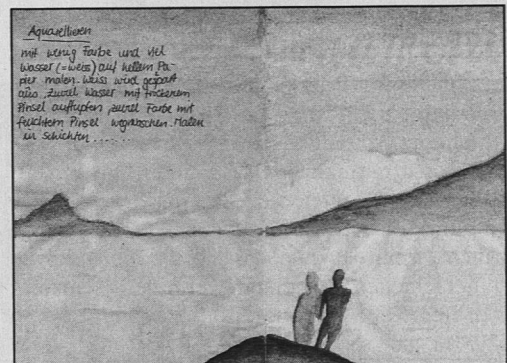 Aquarellieren
mit wenig Farbe und viel
Wasser (=weiss) auf hellem Pa-
pier malen. Weiss wird gespart
also. Zuviel Wasser mit trockenem
Pinsel auftupfen, zuviel Farbe mit
feuchtem Pinsel wegwaschen. Malen
in Schichten......